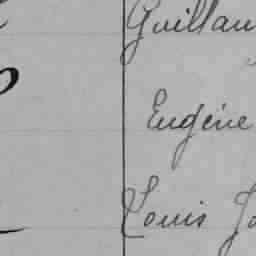 Guillau
Eugène
Louis Jo